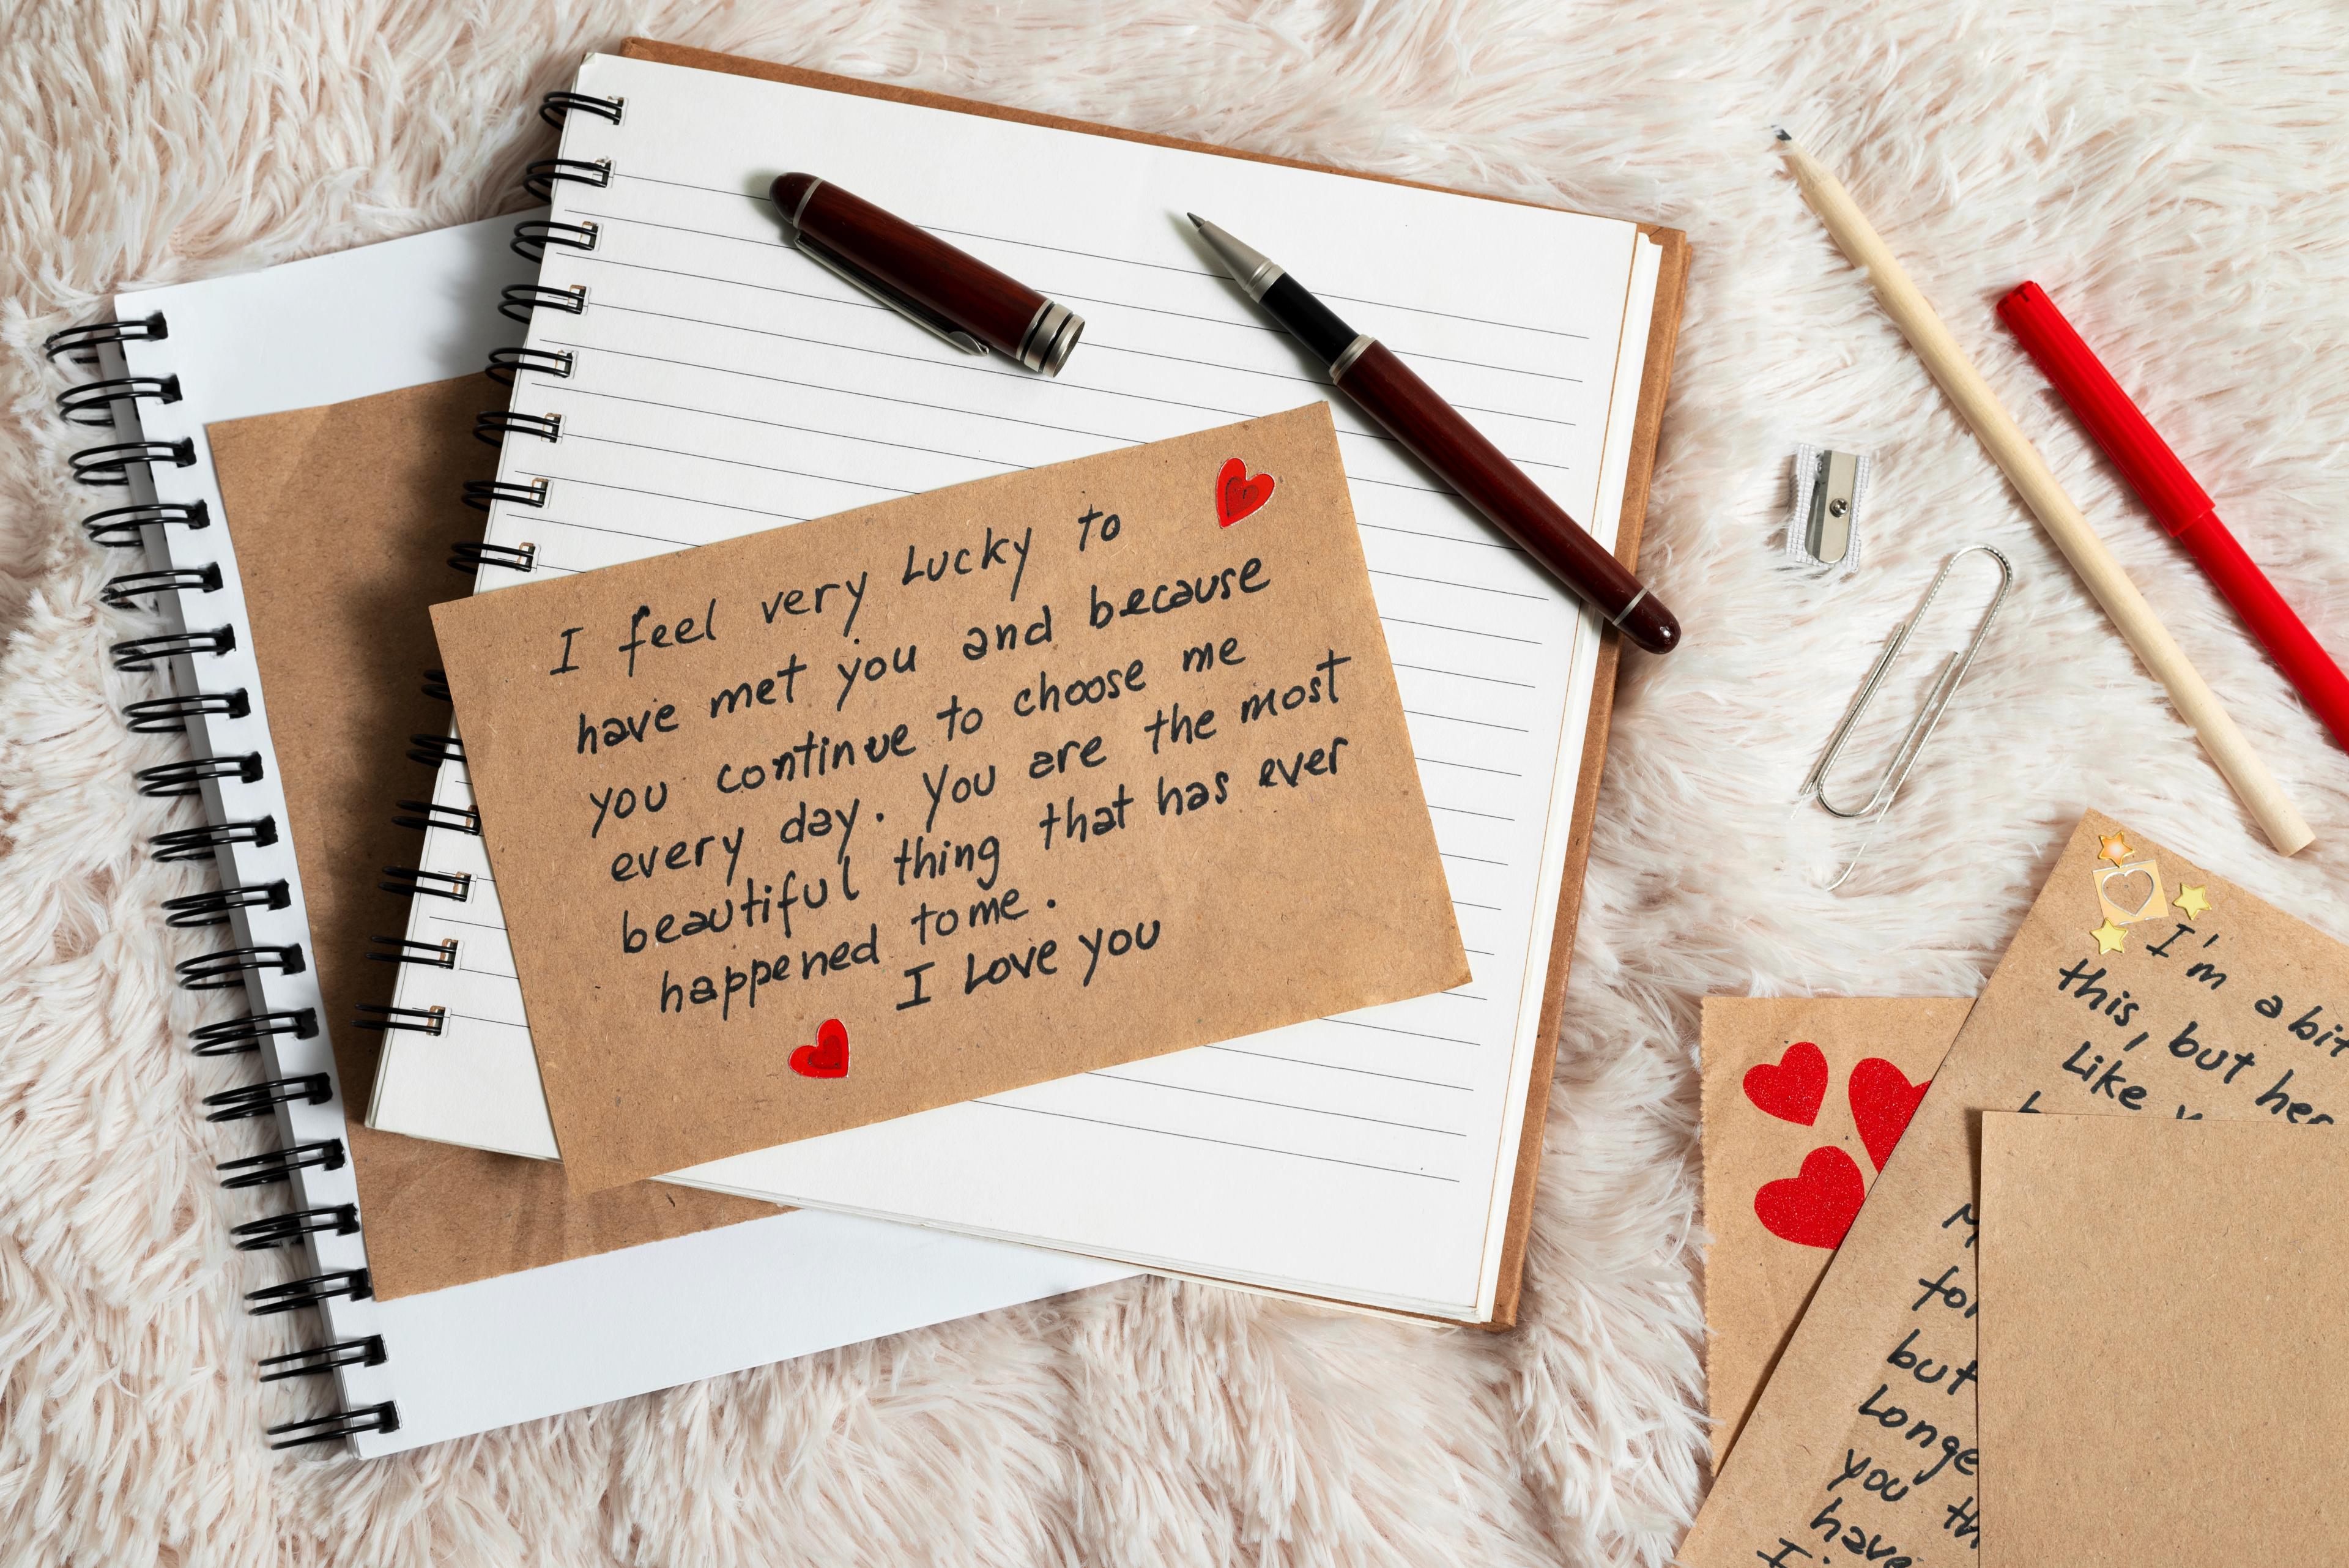 I feel very Lucky to
have met you and because
you continue to choose me
every day. You are the most
beautiful thing that has ever
happened to me.
I Love you
I'm a bit
this, but her
Like
but
you
have